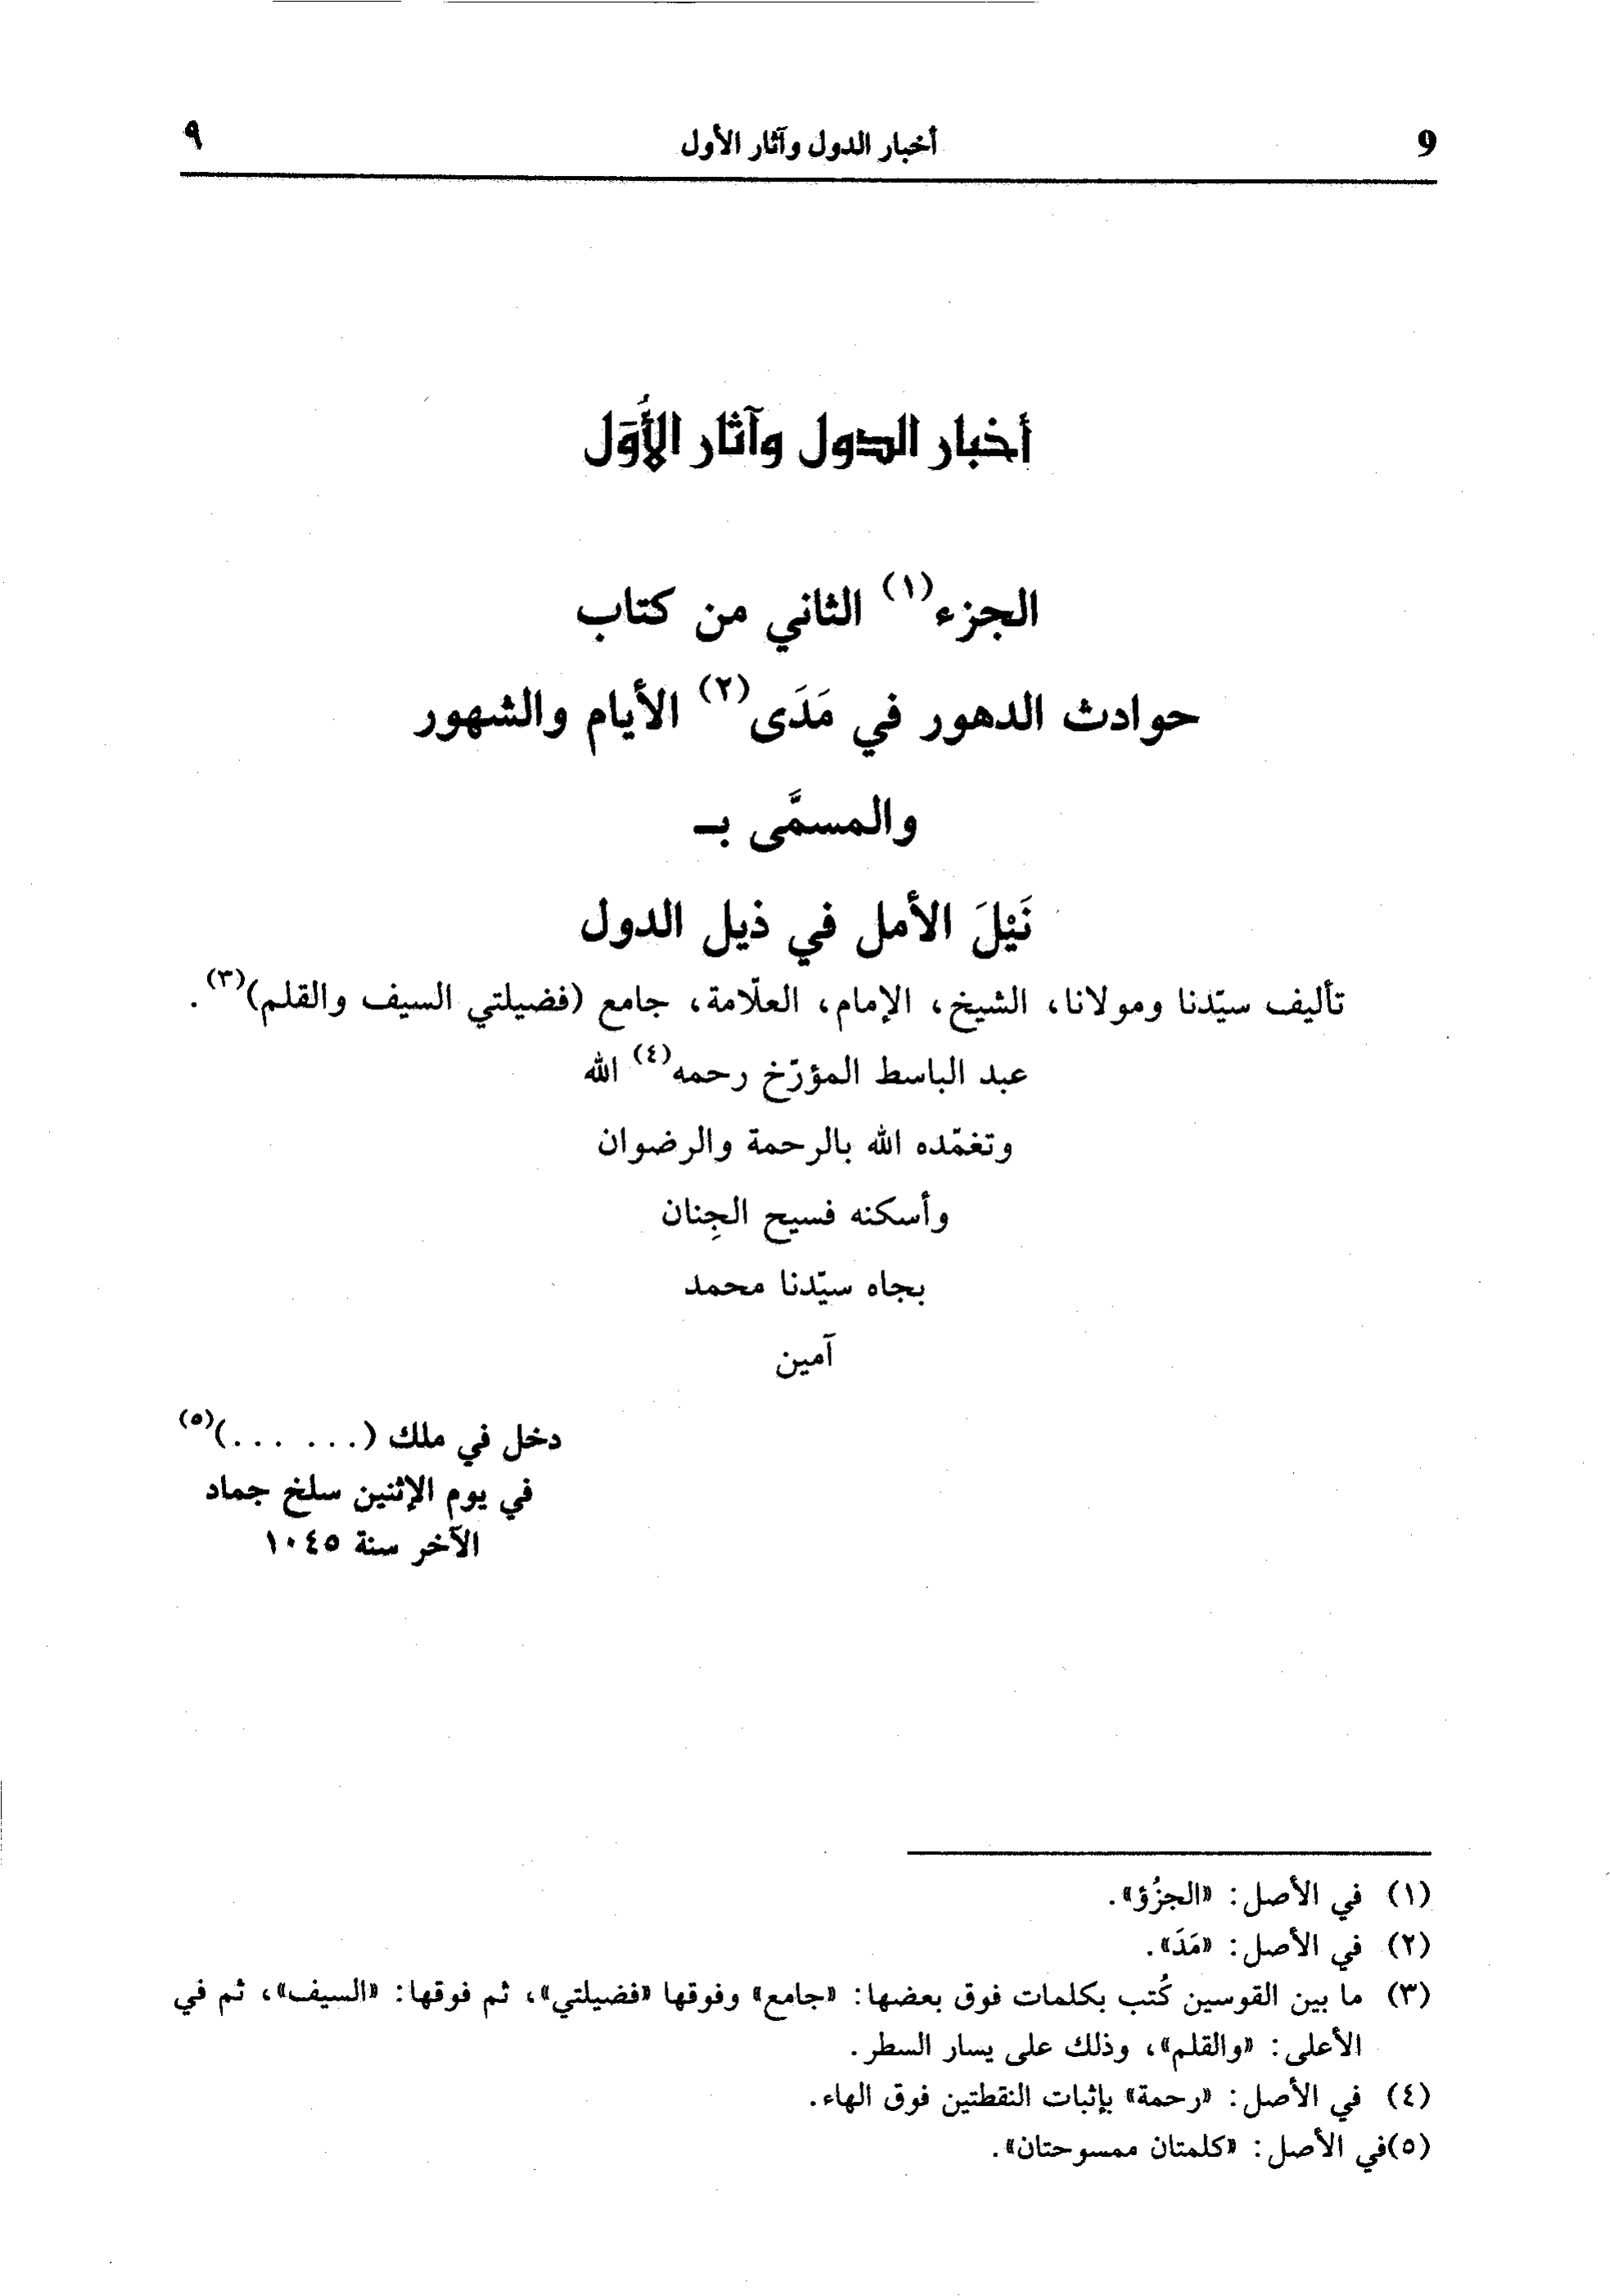 9 أخبار الدول وآثار الأول ٩
أخبار الدول وآثار الأُوَل
الجزء(١) الثاني من كتاب
حوادث الدهور في مَدَى(٢) الأيام والشهور
والمسمَّى بـ
نَيْلَ الأمل في ذيل الدول
تأليف سيّدنا ومولانا، الشيخ، الإمام، العلّامة، جامع (فضيلتي السيف والقلم)(٣).
عبد الباسط المؤرّخ رحمه(٤) الله
وتغمّده الله بالرحمة والرضوان
وأسكنه فسيح الجِنان
بجاه سيّدنا محمد
آمين
دخل في ملك (... ...)(٥)
في يوم الإثنين سلخ جماد
الآخر سنة ١٠٤٥
(١) في الأصل: «الجزُؤ».
(٢) في الأصل: «مَدَ».
(٣) ما بين القوسين كُتب بكلمات فوق بعضها: «جامع» وفوقها «فضيلتي»، ثم فوقها: «السيف»، ثم في
الأعلى: «والقلم»، وذلك على يسار السطر.
(٤) في الأصل: «رحمة» بإثبات النقطتين فوق الهاء.
(٥)في الأصل: «كلمتان ممسوحتان».